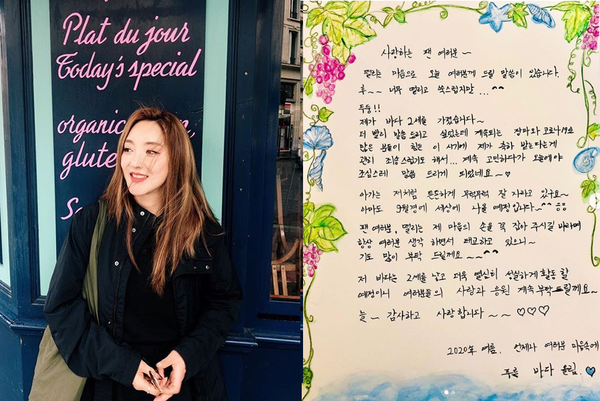 Plat du jour
Today's special
organic
glute
사랑하는 팬 여러분~
떨리는 마음으로 오늘 여러분께 드릴 말씀이 있습니다.
후~~ 너무 떨리고 쑥스럽지만 ...^^
두둥!!
제가 바다 2세를 가졌습니다~
더 빨리 말씀 드리고 싶었는데 계속되는 장마와 코로나에
많은 분들이 힘든 이 시기에 제가 축하 받는다는게
괜히 조심스럽기도 해서... 계속 고민하다가 오늘에야
조심스레 말씀 드리게 되었네요~
아가는 저처럼 튼튼하게 무럭무럭 잘 자라고 있구요~
아마도 9월경에 세상에 나올 예정입니다~^^
팬 여러분, 떨리는 제 마음의 손을 꼭 잡아 주시길 바라며
항상 여러분 생각 하면서 태교하고 있으니~
기도 많이 부탁 드릴께요~^^
저 바다는 2세를 낳고 더욱 열심히 성실하게 활동 할
예정이니 여러분들의 사랑과 응원 계속 부탁드릴께요~
늘~ 감사하고 사랑합니다~~♡♡♡
2020년 여름. 언제나 여러분 마음속에
푸를 바다 올림.